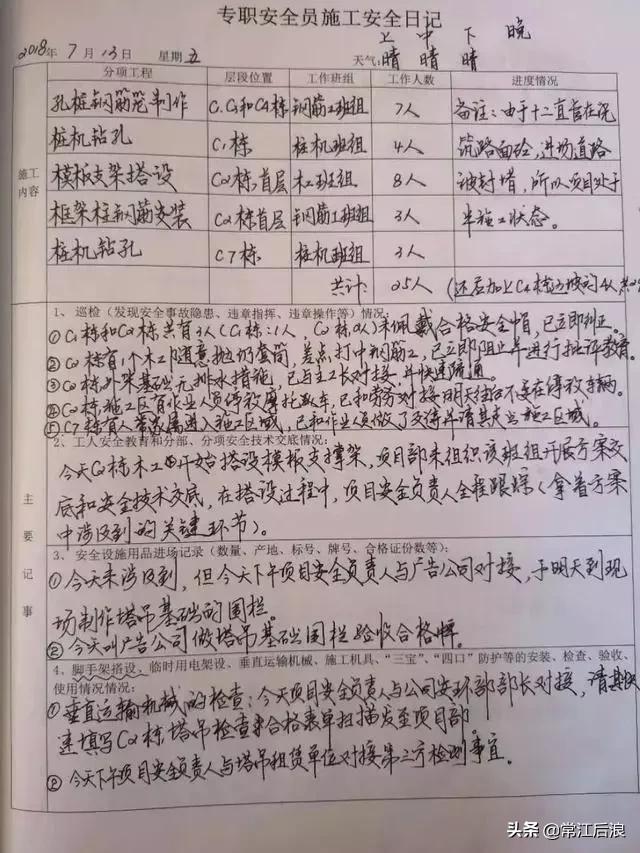 专职安全员施工安全日记
上 中 下 晚
2018年 7月13日 星期五 天气: 晴 晴 晴
分项工程 层段位置 工作班组 工作人数 进度情况
施工内容
孔桩钢筋笼制作 钢筋工班组 7人 备注:由于十二直管在浇
桩机钻孔 C1栋 桩机班组 4人 筑路面砼,进场道路
模板支架搭设 C2栋首层 木工班组 8人 被封堵,所以项目处于
框架柱钢筋安装 C2栋首层 钢筋工班组 3人 半施工状态。
桩机钻孔 C7栋 桩机班组 3人
共计: 25人 (还应加上C4栋边坡的4人
1、巡检(发现安全事故隐患、违章指挥、违章操作等)情况:
①C1栋和C2栋共有3人(C1栋:1人,C2栋2人)未佩戴合格安全帽,已立即纠正。
②C2栋有1个木工随意抛扔套筒,差点打中钢筋工,已立即阻止并进行批评教育。
③C2栋外架基础无排水措施,已与主工长对接,并快速疏通。
④C2栋施工区有作业人员停放摩托车,已和劳务对接明天往后不要在停放车辆。
⑤C7栋有人带家属进入施工区域,已和作业人员做了交待并请其走出施工区域。
2、工人安全教育和分部、分项安全技术交底情况:
今天C2栋木工开始搭设模板支撑架,项目部未组织该班组开展方案交
底和安全技术交底,在搭设过程中,项目安全负责人全程跟踪(拿着方案
中涉及到的关键环节)。
主要记事
3、安全设施用品进场记录(数量、产地、标号、牌号、合格证份数等):
①今天未涉及到,但今天下午项目安全负责人与广告公司对接,于明天到现
场制作塔吊基础的围栏。
②今天叫广告公司做塔吊基础围栏验收合格牌。
4、脚手架搭设、临时用电架设、垂直运输机械、施工机具、“三宝”、“四口”防护等的安装、检查、验收、
使用情况情况:
①垂直运输机械的检查:今天项目安全负责人与公司安环部部长对接,请其快
速填写C2栋塔吊检查合格表单扫描发至项目部。
②今天下午项目安全负责人与塔吊租赁单位对接第三方检测事宜。
头条 @常江后浪